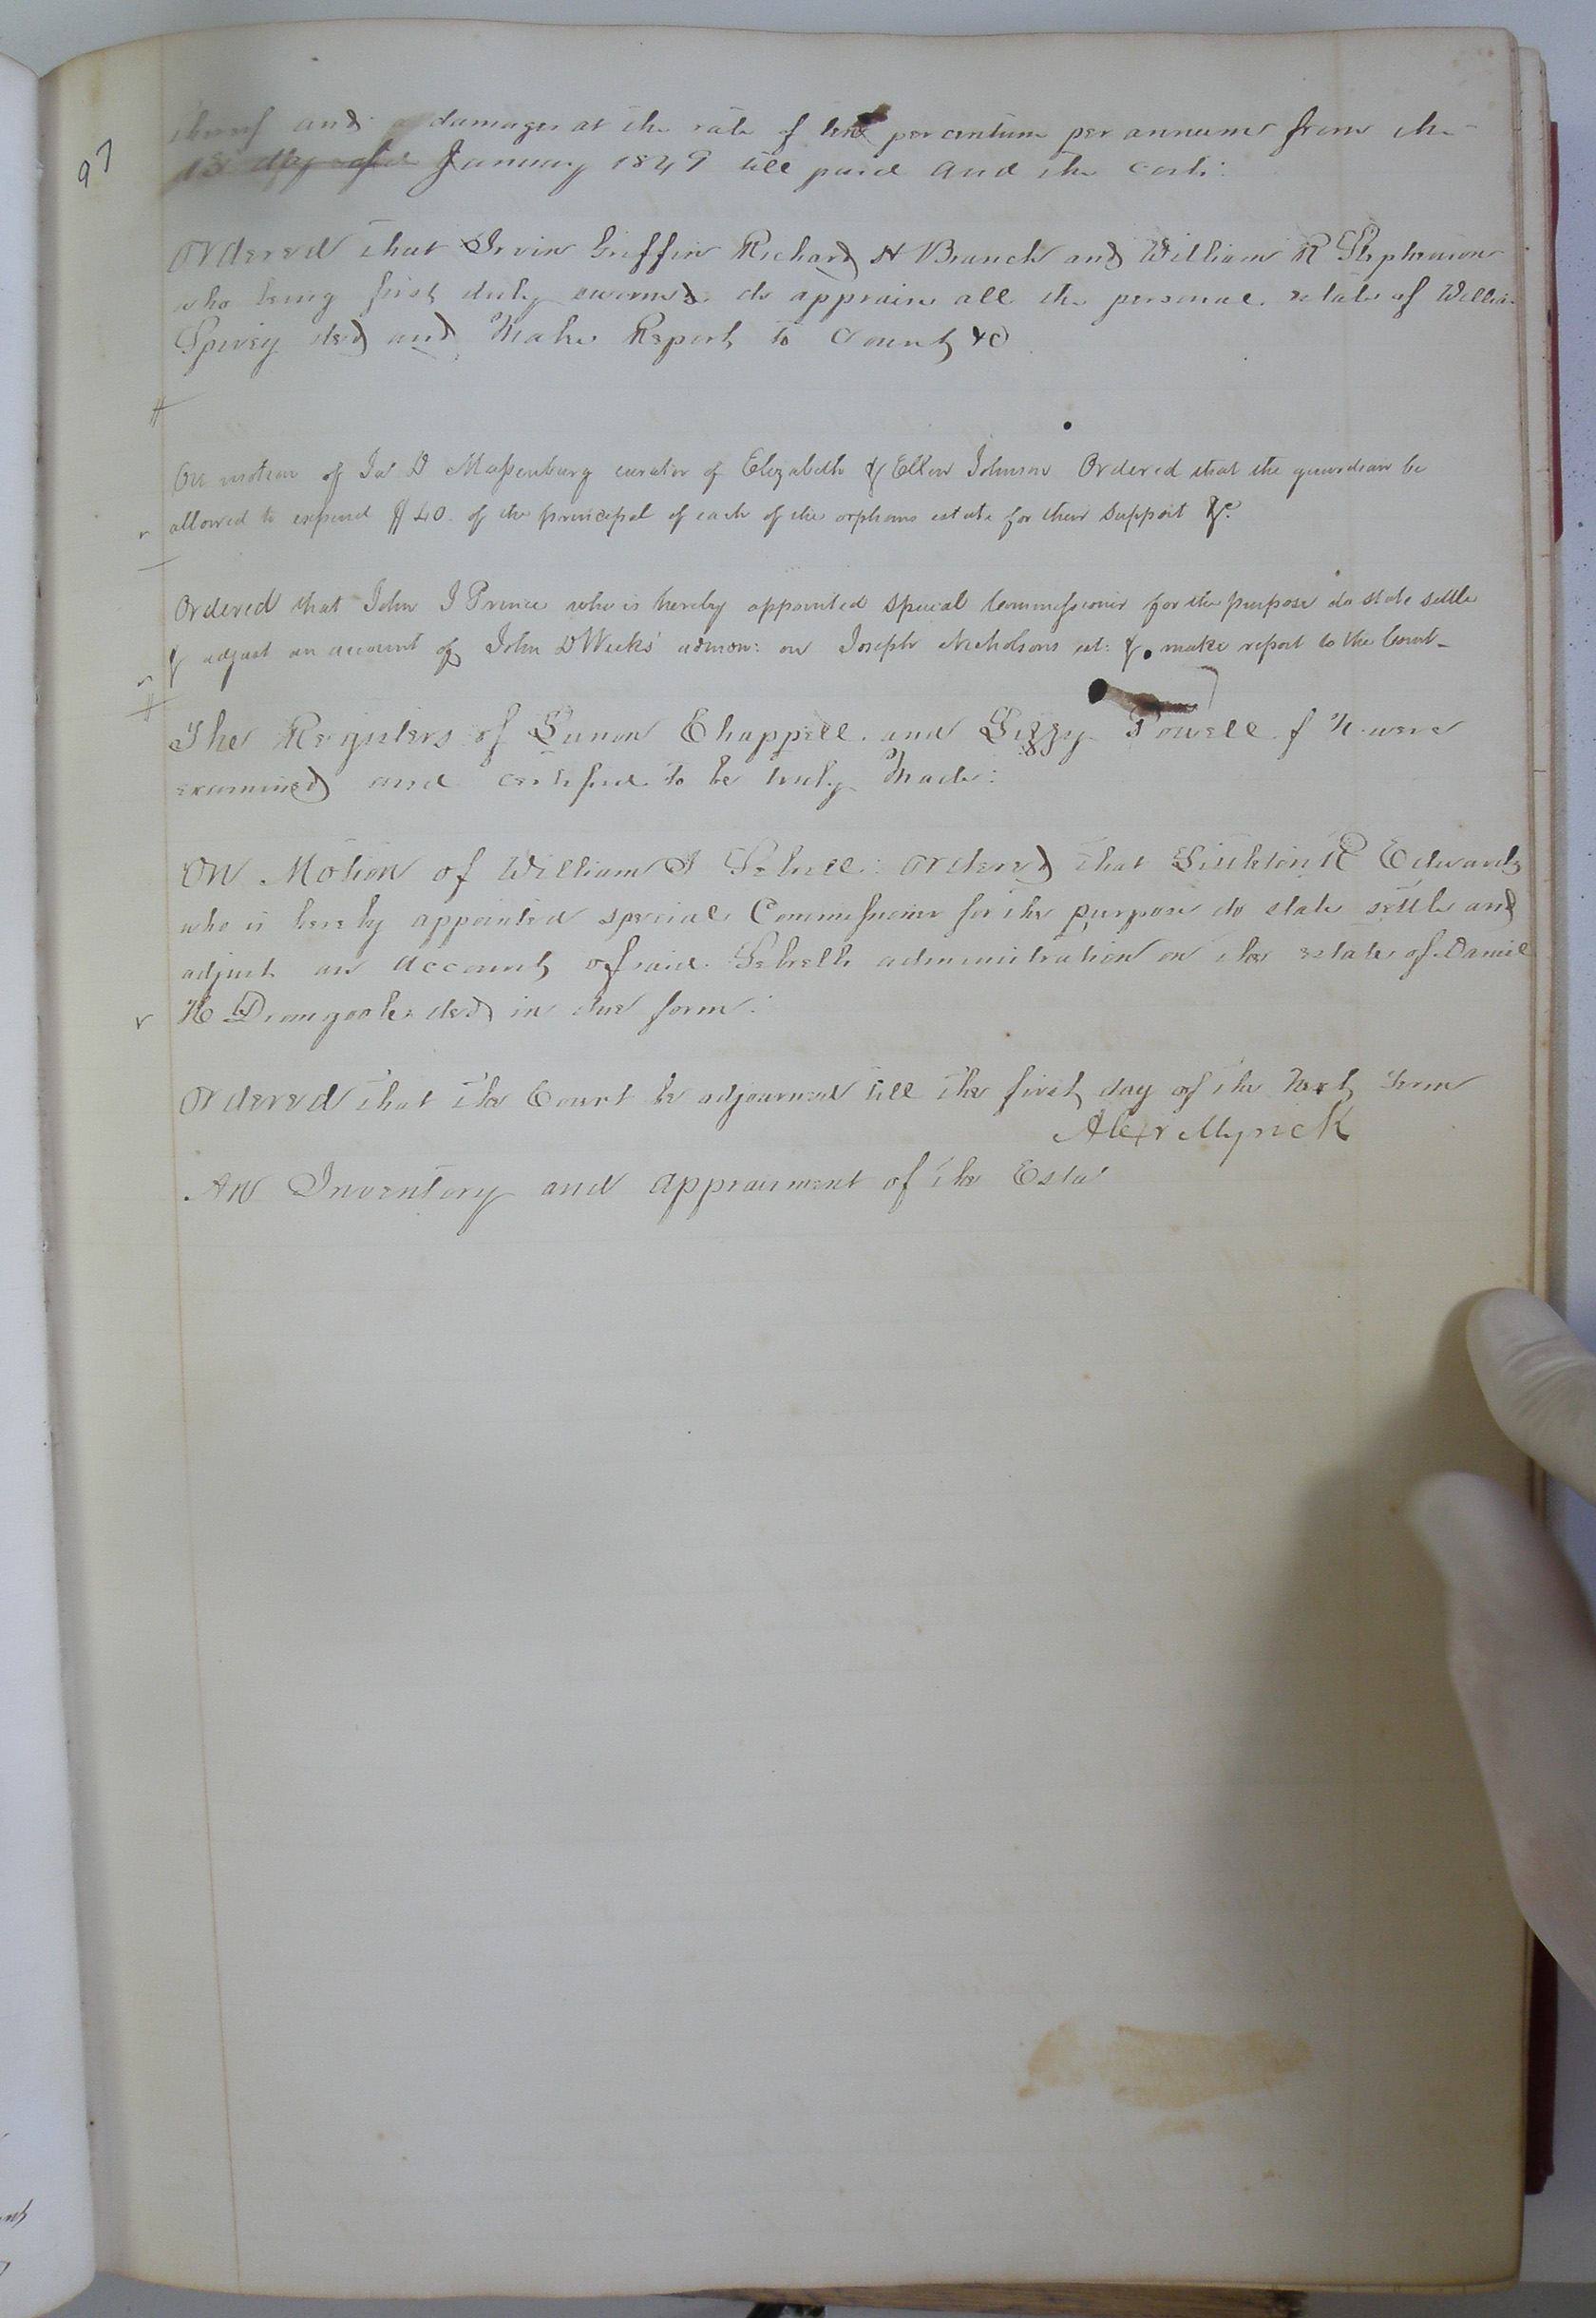 97
thereof and damages at the rate of ten per centum per annum from the
13 day of January 1849 till paid and the costs:
Ordered that Irvin Griffin Richard H Branch and William R Stephenson
who being first duly sworn do appraise all the personal estate of William
Spivey decd and make Report to Court &c
On motion of Jas D Massenburg curator of Elizabeth & Ellen Johnson Ordered that the guardian be
allowed to expend $40 of the principal of each of the orphans estate for their support &c.
Ordered that John J Prince who is hereby appointed special Commissioner for the purpose do state settle
& adjust an account of John D Weeks' admon: on Joseph Nicholsons est: & make report to the Court_
The Registers of Chappell and Lizzy Powell f N were
examined and certified to be truly Made:
On Motion of William J Sebrell: ordered that Littleton R Edwards
who is hereby appointed special Commissioner for the purpose do state settle and
adjust an account of said Sebrells administration on the estate of Daniel
decd in due form:
Ordered that the Court be adjourned till the first day of the Next Term
Alexr Myrick
An Inventory and appraisment of the Esta